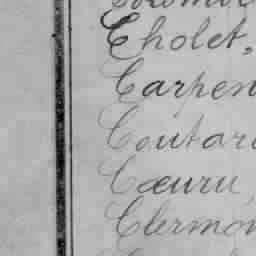 Cholet,
Carpen
Coutar
Cœuru,
Clermon